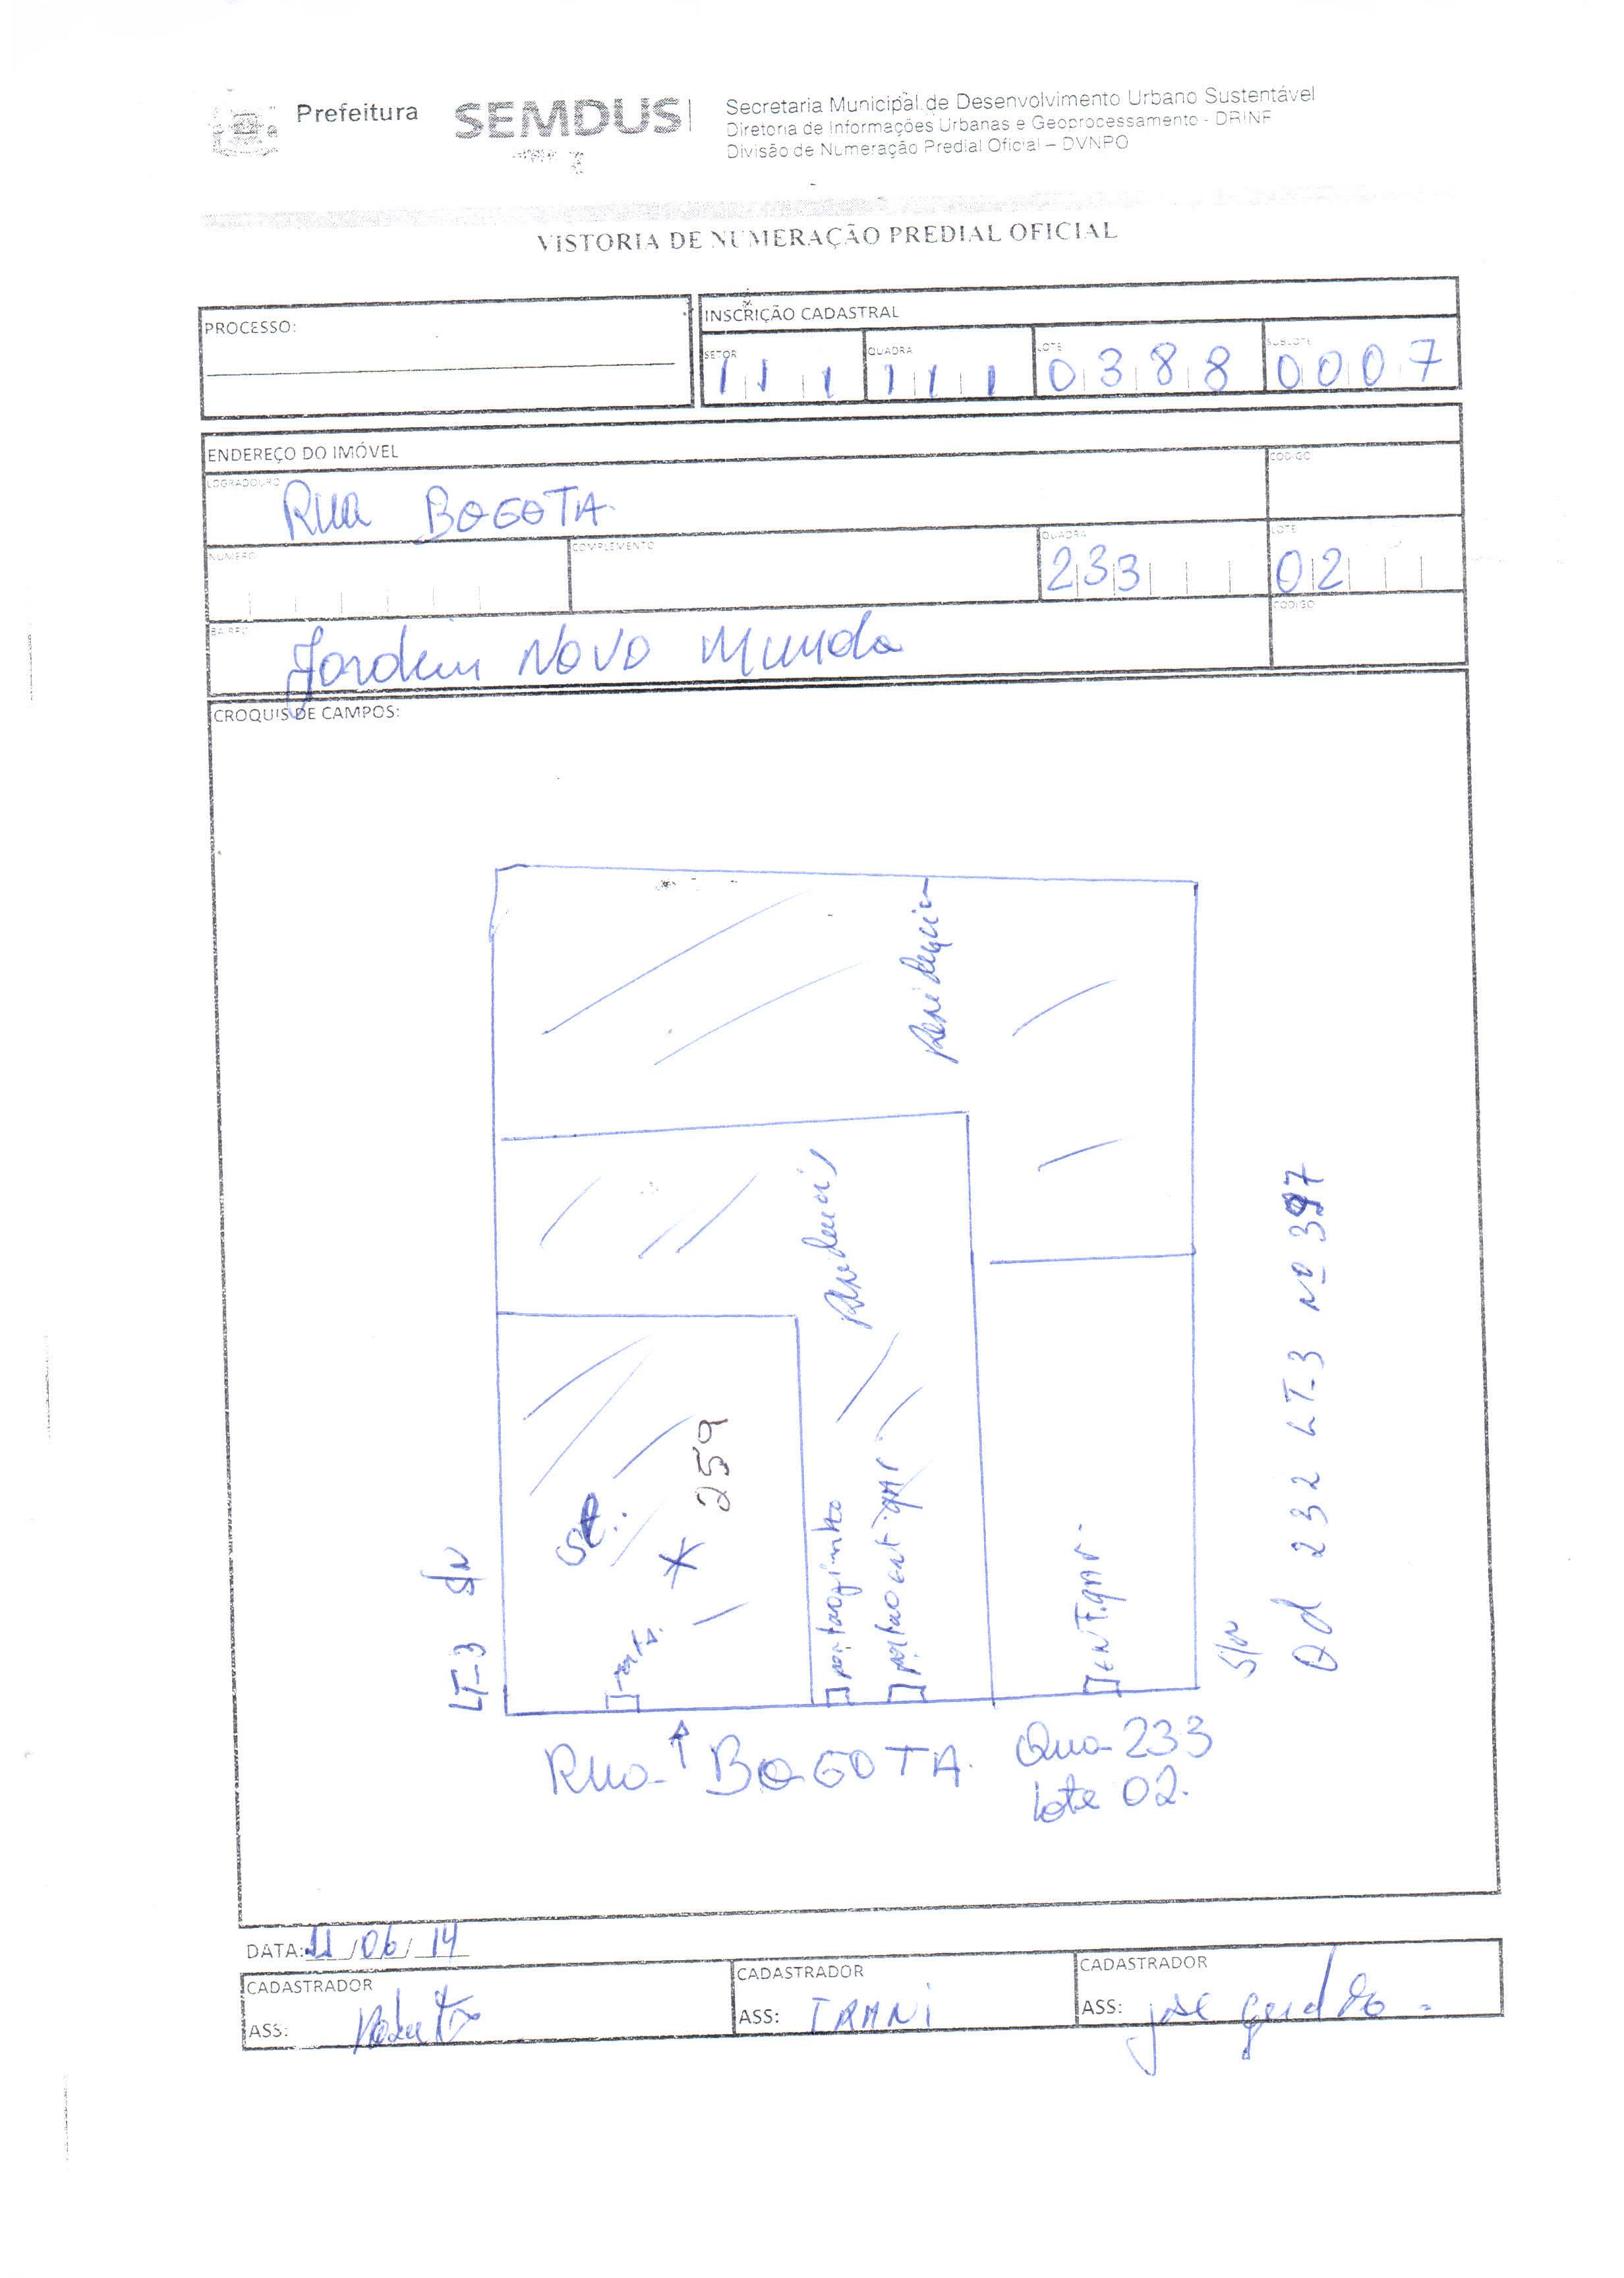 Prefeitura SEMDUS
Secretaria Municipal de Desenvolvimento Urbano Sustentável
Diretoria de Informações Urbanas e Geoprocessamento - DRINF
Divisão de Numeração Predial Oficial – DVNPO
VISTORIA DE NUMERAÇÃO PREDIAL OFICIAL
PROCESSO:
INSCRIÇÃO CADASTRAL
SETOR QUADRA LOTE SUBLOTE
1 1 1 1 1 1 0 3 8 8 0 0 0 7
ENDEREÇO DO IMÓVEL
LOGRADOURO CODIGO
Rua BOGOTA
NUMERO COMPLEMENTO QUADRA LOTE
233 02
BAIRRO CODIGO
Jardim NOVO Mundo
CROQUIS DE CAMPOS:
Residencia
Residencia
259
portaozinho
portao ent gar
ENT. gar.
LT-3 S/N
S/N
Qd 232 LT-3 Nº 397
Rua BOGOTA. Qua 233
Lote 02.
DATA: 11/06/14
CADASTRADOR CADASTRADOR CADASTRADOR
ASS: ASS: IRANI ASS: jose geraldo.